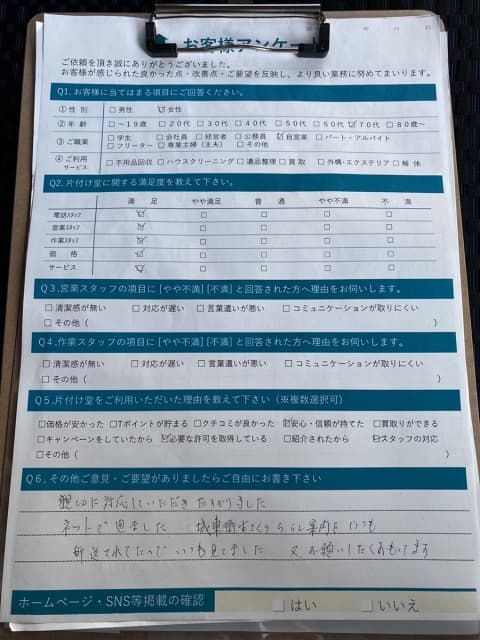 お客様アンケー
年 月 日
ご依頼を頂き誠にありがとうございました。
お客様が感じられた良かった点・改善点・ご要望を反映し、より良い業務に努めてまいります。
Q1.お客様に当てはまる項目にご回答ください。
①性 別 □男性 ☑女性
②年 齢 □~19歳 □20代 □30代 □40代 □50代 □60代 ☑70代 □80歳~
③ご職業 □学生 □会社員 □経営者 □公務員 ☑自営業 □パート・アルバイト
□フリーター □専業主婦(主夫) □その他
④ご利用サービス □不用品回収 □ハウスクリーニング □遺品整理 □買取 □外構・エクステリア □解体
Q2.片付け堂に関する満足度を教えて下さい。
満足 やや満足 普通 やや不満 不満
電話スタッフ ☑ □ □ □ □
営業スタッフ ☑ □ □ □ □
作業スタッフ ☑ □ □ □ □
価格 ☑ □ □ □ □
サービス ☑ □ □ □ □
Q3.営業スタッフの項目に[やや不満][不満]と回答された方へ理由をお伺いします。
□清潔感が無い □対応が遅い □言葉遣いが悪い □コミュニケーションが取りにくい
□その他( )
Q4.作業スタッフの項目に[やや不満][不満]と回答された方へ理由をお伺いします。
□清潔感が無い □対応が遅い □言葉遣いが悪い □コミュニケーションが取りにくい
□その他( )
Q5.片付け堂をご利用いただいた理由を教えて下さい(※複数選択可)
□価格が安かった □Tポイントが貯まる □クチコミが良かった ☑安心・信頼が持てた □買取りができる
□キャンペーンをしていたから ☑必要な許可を取得している □紹介されたから ☑スタッフの対応
□その他( )
Q6.その他ご意見・ご要望がありましたらご自由にお書き下さい
親切に対応していただき たすかりました
ネットで 城東衛生さんの ちらし案内を いつも
郵送されてたので いつも見てました 又お願いしたくおもってます
ホームページ・SNS等掲載の確認 □はい □いいえ